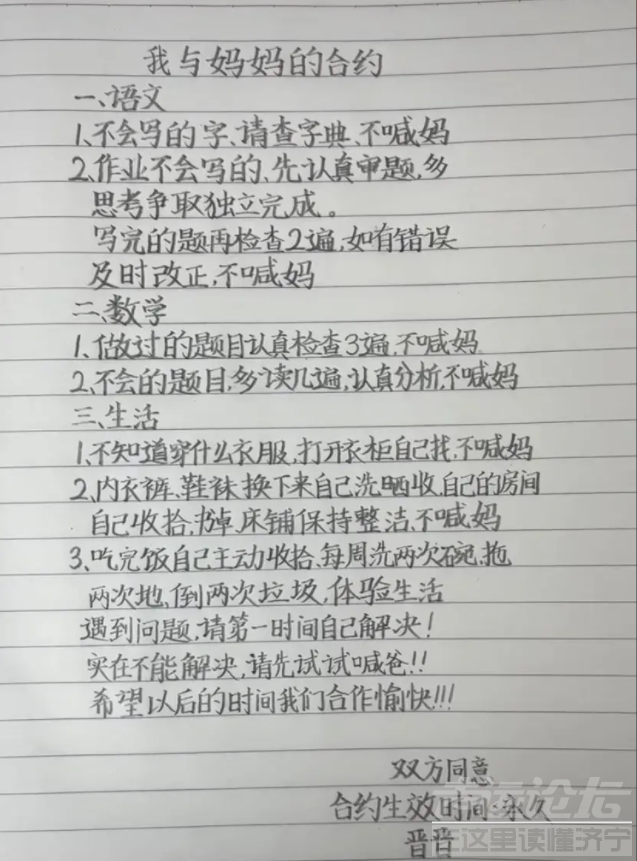 我与妈妈的合约
一、语文
1、不会写的字、请查字典、不喊妈
2、作业不会写的、先认真审题,多
思考争取独立完成。
写完的题再检查2遍,如有错误
及时改正,不喊妈
二、数学
1、做过的题目认真检查3遍,不喊妈
2、不会的题目,多读几遍,认真分析,不喊妈
三、生活
1、不知道穿什么衣服,打开衣柜自己找,不喊妈
2、内衣裤、鞋袜换下来自己洗晒收,自己的房间
自己收拾,书桌,床铺保持整洁,不喊妈
3、吃完饭自己主动收拾、每周洗两次碗,拖
两次地、倒两次垃圾,体验生活
遇到问题,请第一时间自己解决!
实在不能解决,请先试试喊爸!!
希望以后的时间我们合作愉快!!!
双方同意
合约生效时间:永久
晋晋
论坛
在这里读懂济宁